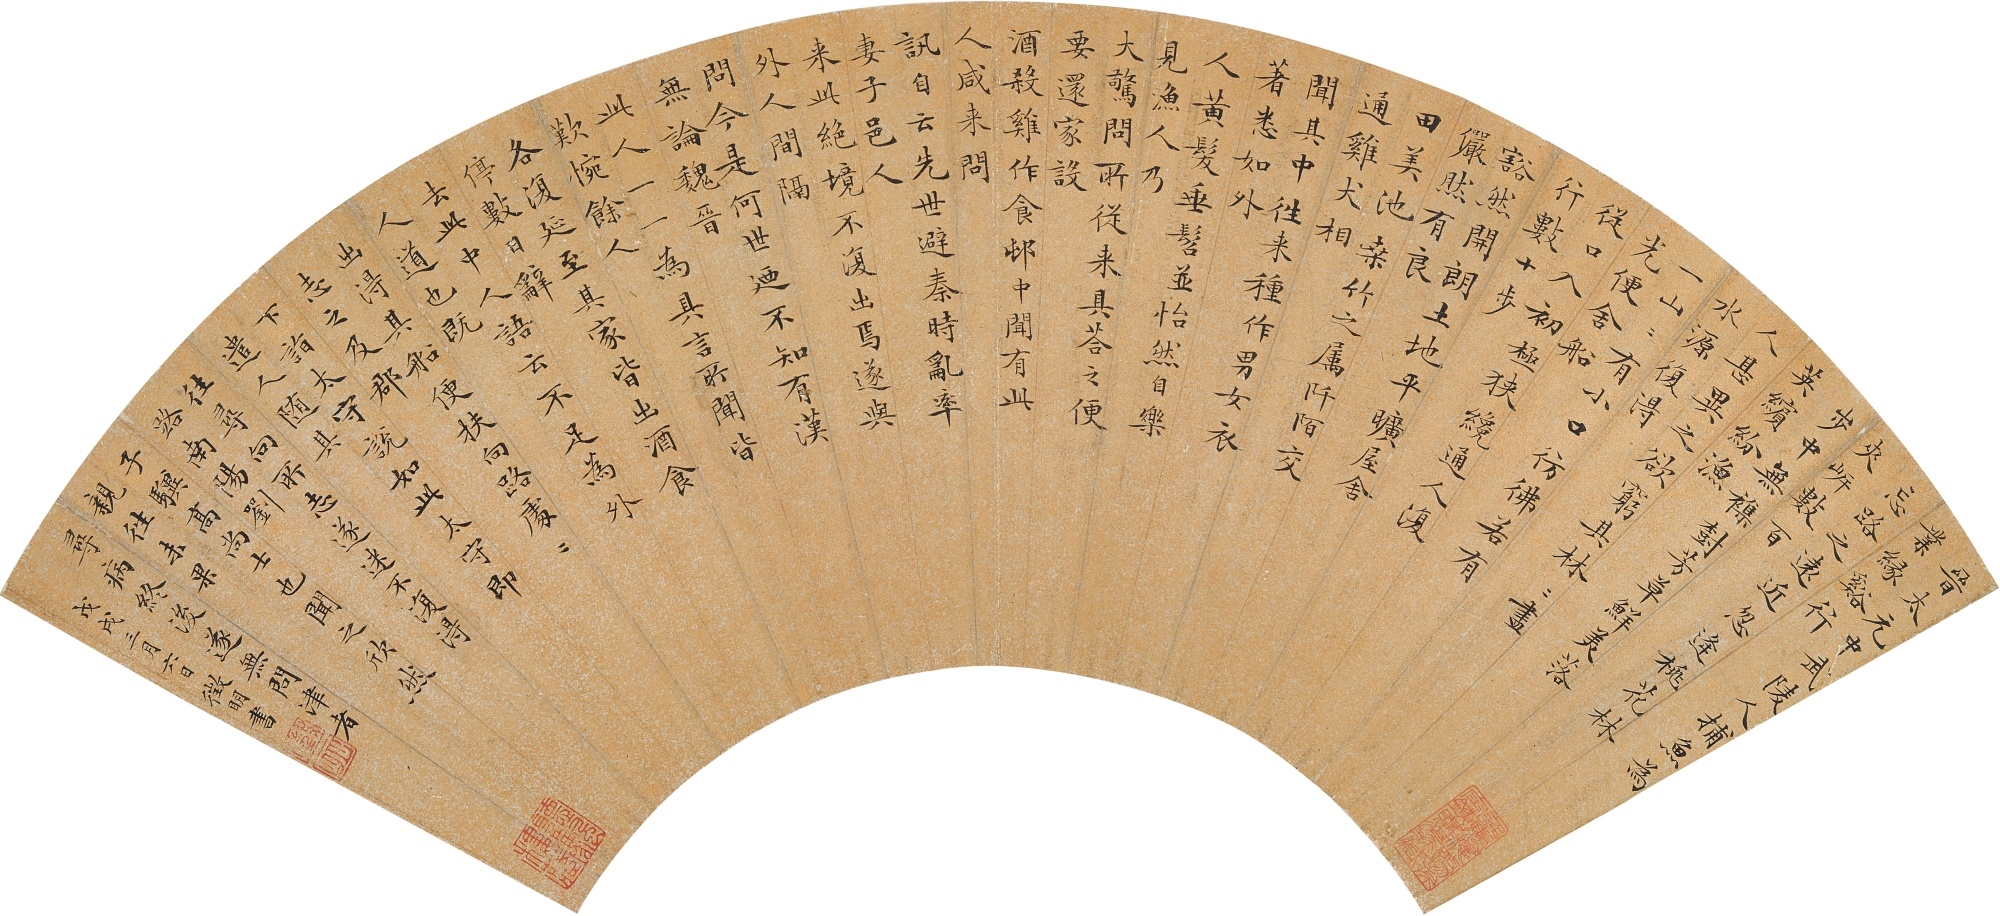 晉太元中武陵人捕魚為
業緣谿行
忘路之遠近忽逢桃花林
夾岸數百
步中無襍樹芳草鮮美落
英繽紛漁
人甚異之欲窮其林〻盡
水源復得
一山〻有小口彷彿若有
光便舍船
從口入初極狹纔通人復
行數十步
豁然開朗土地平曠屋舍
儼然有良
田美池桑竹之属阡陌交
通雞犬相
聞其中往来種作男女衣
著悉如外
人黃髮垂髫並怡然自樂
見漁人乃
大驚問所從来具荅之便
要還家設
酒殺雞作食邨中聞有此
人咸来問
訊自云先世避秦時亂率
妻子邑人
来此絕境不復出焉遂與
外人間隔
問今是何世廼不知有漢
無論魏晉
此人一一為具言所聞皆
歎惋餘人
各復延至其家皆出酒食
停數日辭
去此中人語云不足為外
人道也既
出得其船便扶向路處〻
志之及郡
下詣太守說如此太守即
遣人隨其
往尋向所志遂迷不復得
路南陽劉
子驥高尚士也聞之欣然
親往未果
尋病終後遂無問津者
戊戌三月六日徵明書